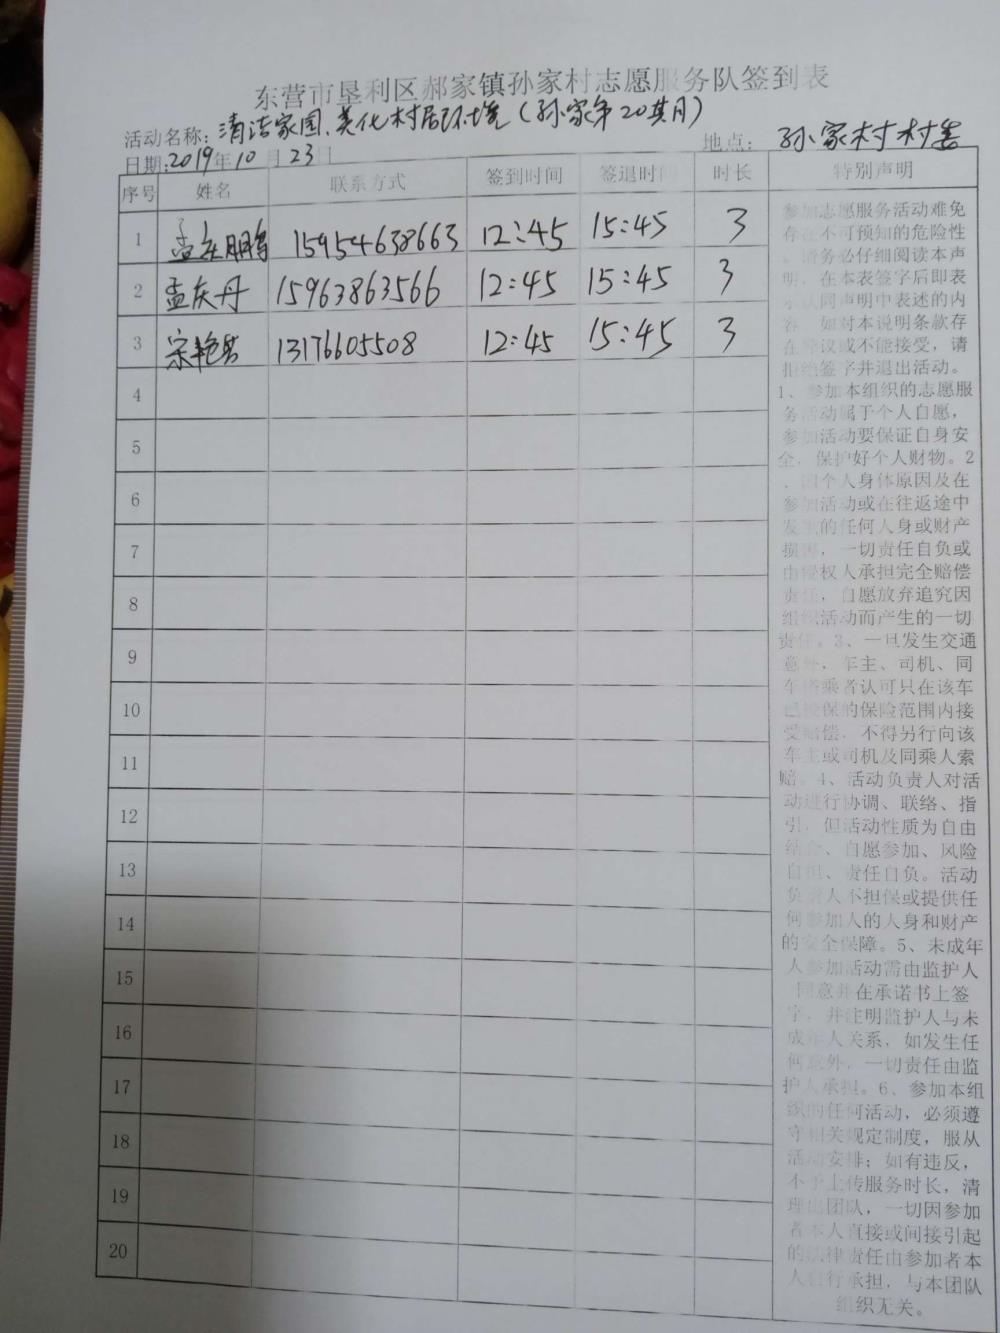 东营市垦利区郝家镇孙家村志愿服务队签到表
活动名称：清洁家园、美化村居环境（孙家第20期）
地点：孙家村村委
日期：2019年10月23日
序号 姓名 联系方式 签到时间 签退时间 时长 特别声明
1 孟庆鹏 15954638663 12:45 15:45 3
2 孟庆丹 15963863566 12:45 15:45 3
3 宋艳 13176605508 12:45 15:45 3
4
5
6
7
8
9
10
11
12
13
14
15
16
17
18
19
20
参加志愿服务活动难免
存在不可预知的危险性
，请务必仔细阅读本声
明，在本表签字后即表
示认同声明中表述的内
容，如对本说明条款存
在异议或不能接受，请
拒绝签字并退出活动。
1、参加本组织的志愿服
务活动属于个人自愿，
参加活动要保证自身安
全，保护好个人财物。2
、因个人身体原因及在
参加活动或在往返途中
发生的任何人身或财产
损害，一切责任自负或
由侵权人承担完全赔偿
责任，自愿放弃追究因
组织活动而产生的一切
责任。3、一旦发生交通
意外，车主、司机、同
车搭乘者认可只在该车
已投保的保险范围内接
受赔偿，不得另行向该
车主或司机及同乘人索
赔。4、活动负责人对活
动进行协调、联络、指
引，但活动性质为自由
结合、自愿参加、风险
自担、责任自负。活动
负责人不担保或提供任
何参加人的人身和财产
的安全保障。5、未成年
人参加活动需由监护人
同意并在承诺书上签
字，并注明监护人与未
成年人关系，如发生任
何意外，一切责任由监
护人承担。6、参加本组
织的任何活动，必须遵
守相关规定制度，服从
活动安排；如有违反，
不予上传服务时长，清
理出团队，一切因参加
者本人直接或间接引起
的法律责任由参加者本
人自行承担，与本团队
组织无关。